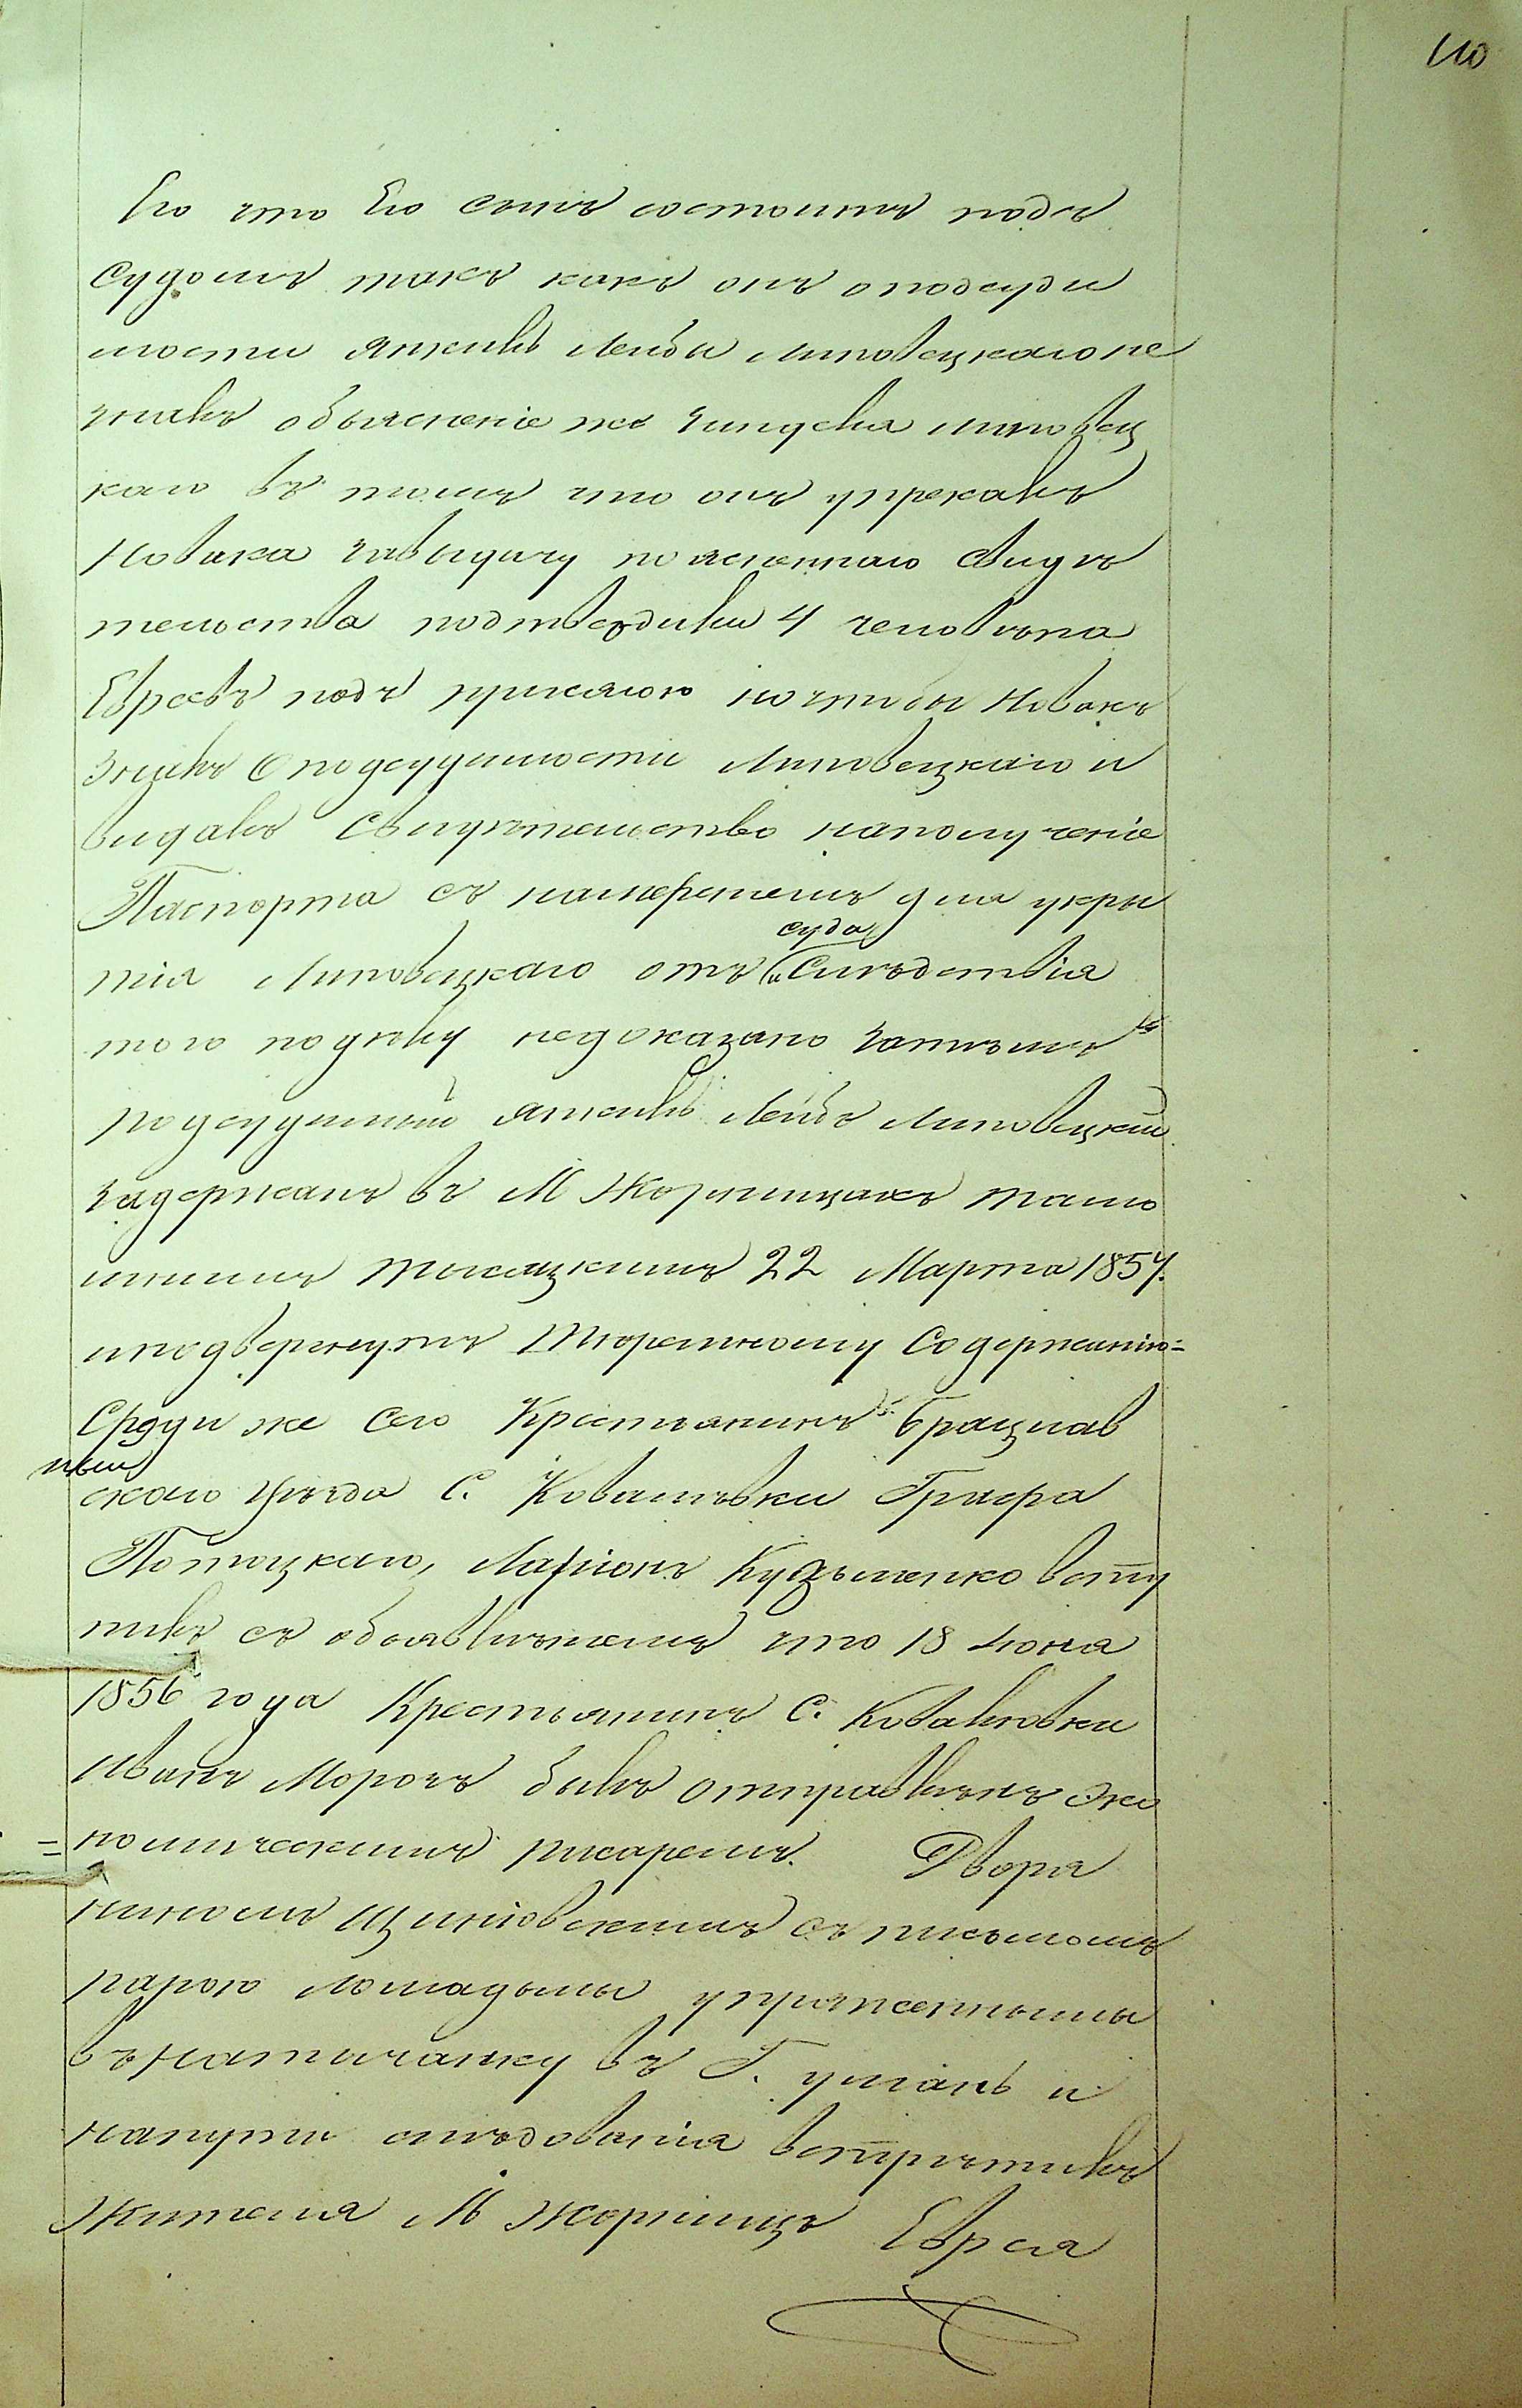 110
Его что Его сынъ состоитъ подъ
судомъ такъ какъ онъ оподсуди
мости Янкиль Лейбы Липовецкаго не
зналъ объясненіе же Липовец
каго въ томъ что онъ упрекалъ
Новака завыдачу поясненнаго свидѣ
тельства подтвердили 4 человѣка
Евреевъ подъ присягою но чтобы Новакъ
зналъ о подсудимости Липовецкаго и
видалъ свидѣтельство наполученіе
Паспорта съ намѣреніемъ для укры
суда
тія Липовецкаго отъ и Слѣдствія
того подѣлу недоказано затѣмъ
подсудимый Янкиль Лейбъ Липовецкій
задержанъ въ М Жорнищахъ тамо
шнимъ тысяцкимъ 22 Марта 1857.
иподвергнутъ Тюремному Содержанію=
Среди же сего Крестьянинъ Брацлав
скаго уѣзда С. Ковалевки Графа
Потоцкаго, Ларіонъ Кузьменко всту
пилъ съ объявлѣніемъ что 18 Іюня
1856 года Крестьянинъ С. Ковалювки
Иванъ Морозъ былъ отправлѣнъ эко
=номическимъ писаремъ. Дворя
ниномъ съ письмомъ
парою лошадьмы упряженнымы
въ Натычанку въ Г. Умань и
напути слѣдованія встрѣтилъ
Жителя М Жорнищъ Еврея